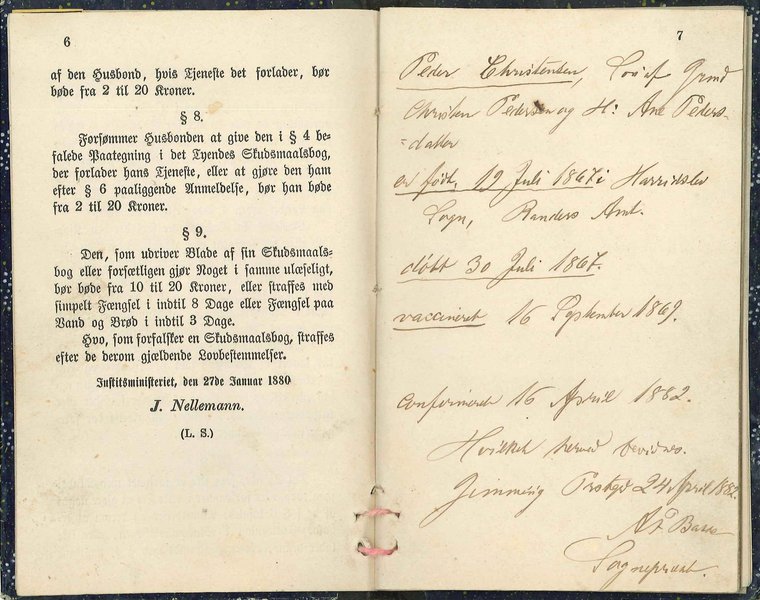 6
af den Husbond, hvis Tjeneste det forlader, bør
bøde fra 2 til 20 Kroner.
§ 8.
Forsømmer Husbonden at give den i § 4 be-
falede Paategning i det Tyendes Skudsmaalsbog,
der forlader hans Tjeneste, eller at gjøre den ham
efter § 6 paaliggende Anmeldelse, bør han bøde
fra 2 til 20 Kroner.
§ 9.
Den, som udriver Blade af sin Skudsmaals-
bog eller forsætligen gjør Noget i samme ulæseligt,
bør bøde fra 10 til 20 Kroner, eller straffes med
simpelt Fængsel i indtil 8 Dage eller Fængsel paa
Vand og Brød i indtil 3 Dage.
Hvo, som forfalsker en Skudsmaalsbog, straffes
efter de derom gjældende Lovbestemmelser.
Justitsministeriet, den 27de Januar 1880
J. Nellemann.
(L. S.)
7
Peder Christensen, Søn af Grmd
Christen Pedersen og H: Ane Peders-
=datter
er født, 19 Juli 1867 i Harridslev
Sogn, Randers Amt.
døbt 30 Juli 1867.
vaccineret 16 September 1869.
confirmeret 16 April 1882.
Hvilket herved bevidnes.
Gimming Prstgd 24 April 1882.
Sognepræst.